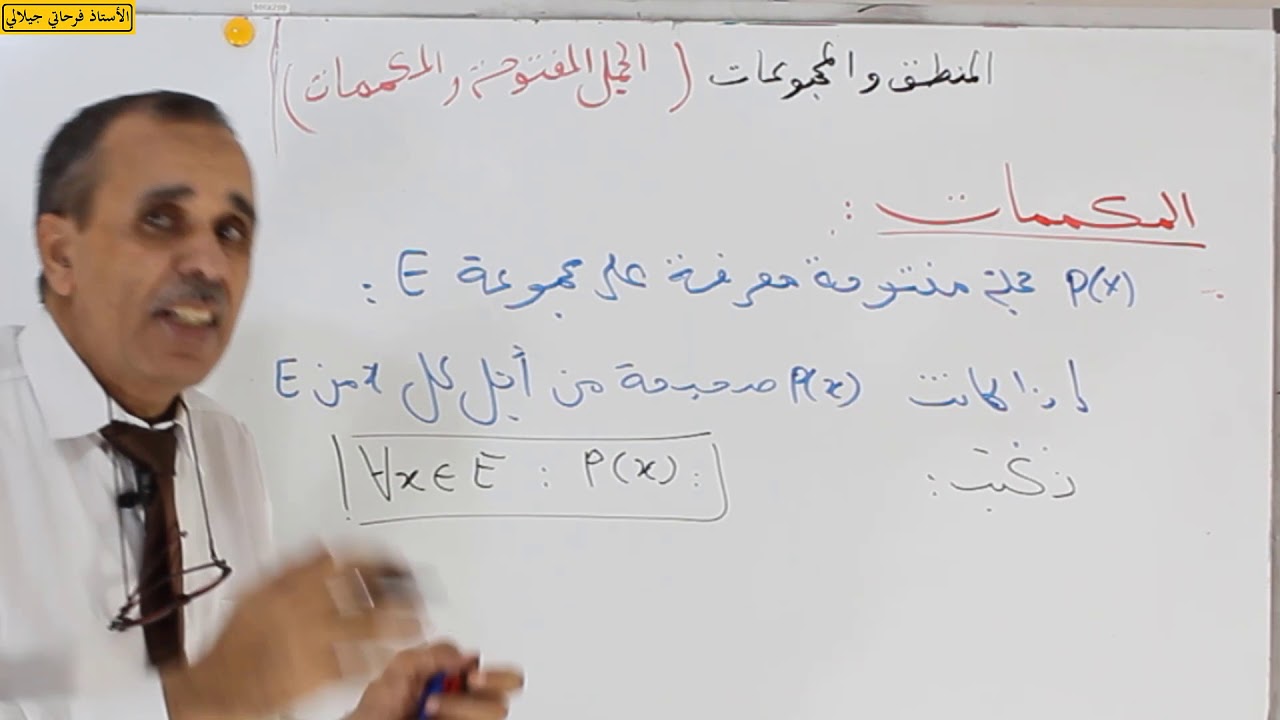 الأستاذ فرحاتي جيلالي
المنطق والمجموعات (الجمل المفتوحة والمكممات)
المكممات :
P(x) جملة مفتوحة معرفة على مجموعة E :
إذا كانت P(x) صحيحة من أجل كل x من E
نكتب : ∀x ∈ E : P(x) :